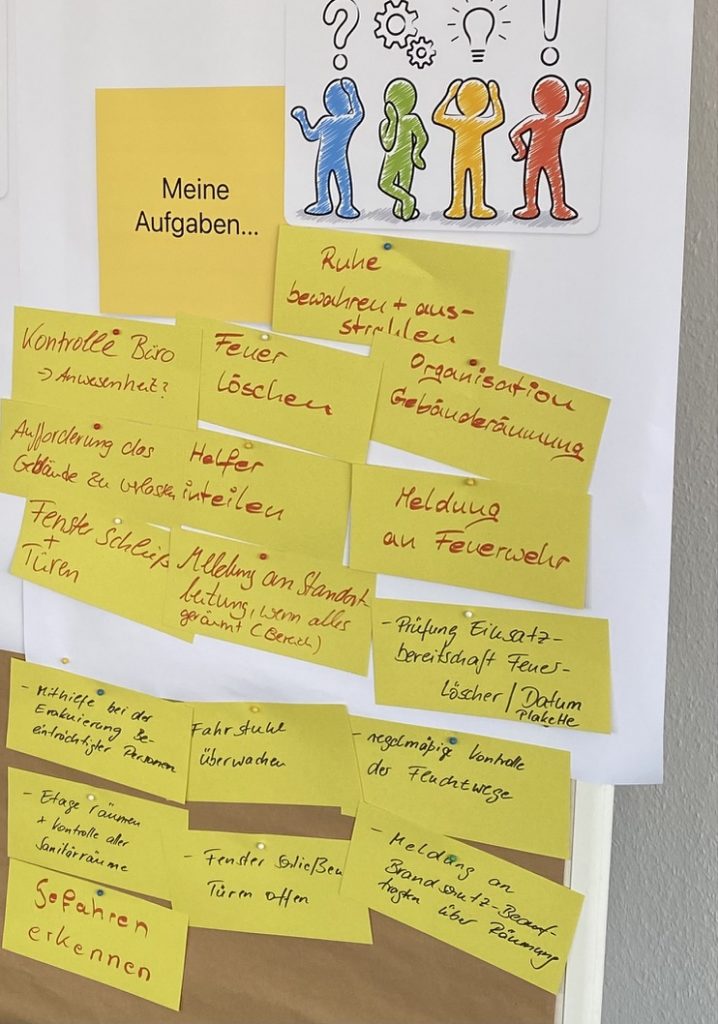 Meine
Aufgaben...
Ruhe
bewahren + aus-
strahlen
Kontrolle Büro
→ Anwesenheit?
Feuer
löschen
Organisation
Gebäuderäumung
Aufforderung das
Gebäude zu verlassen
Helfer
inteilen
Meldung
an Feuerwehr
Fenster schließ
+
Türen
Meldung an Standort-
leitung, wenn alles
geräumt (Bereich)
- Prüfung Einsatz-
bereitschaft Feuer-
löscher / Datum
Plakette
- Mithilfe bei der
Evakuierung Be-
einträchtigter Personen
Fahrstuhl
überwachen
- regelmäßige Kontrolle
der Fluchtwege
- Etage räumen
+ Kontrolle aller
Sanitärräume
- Fenster schließen
Türen offen
- Meldung an
Brandschutz-Beauf-
tragten über Räumung
Gefahren
erkennen